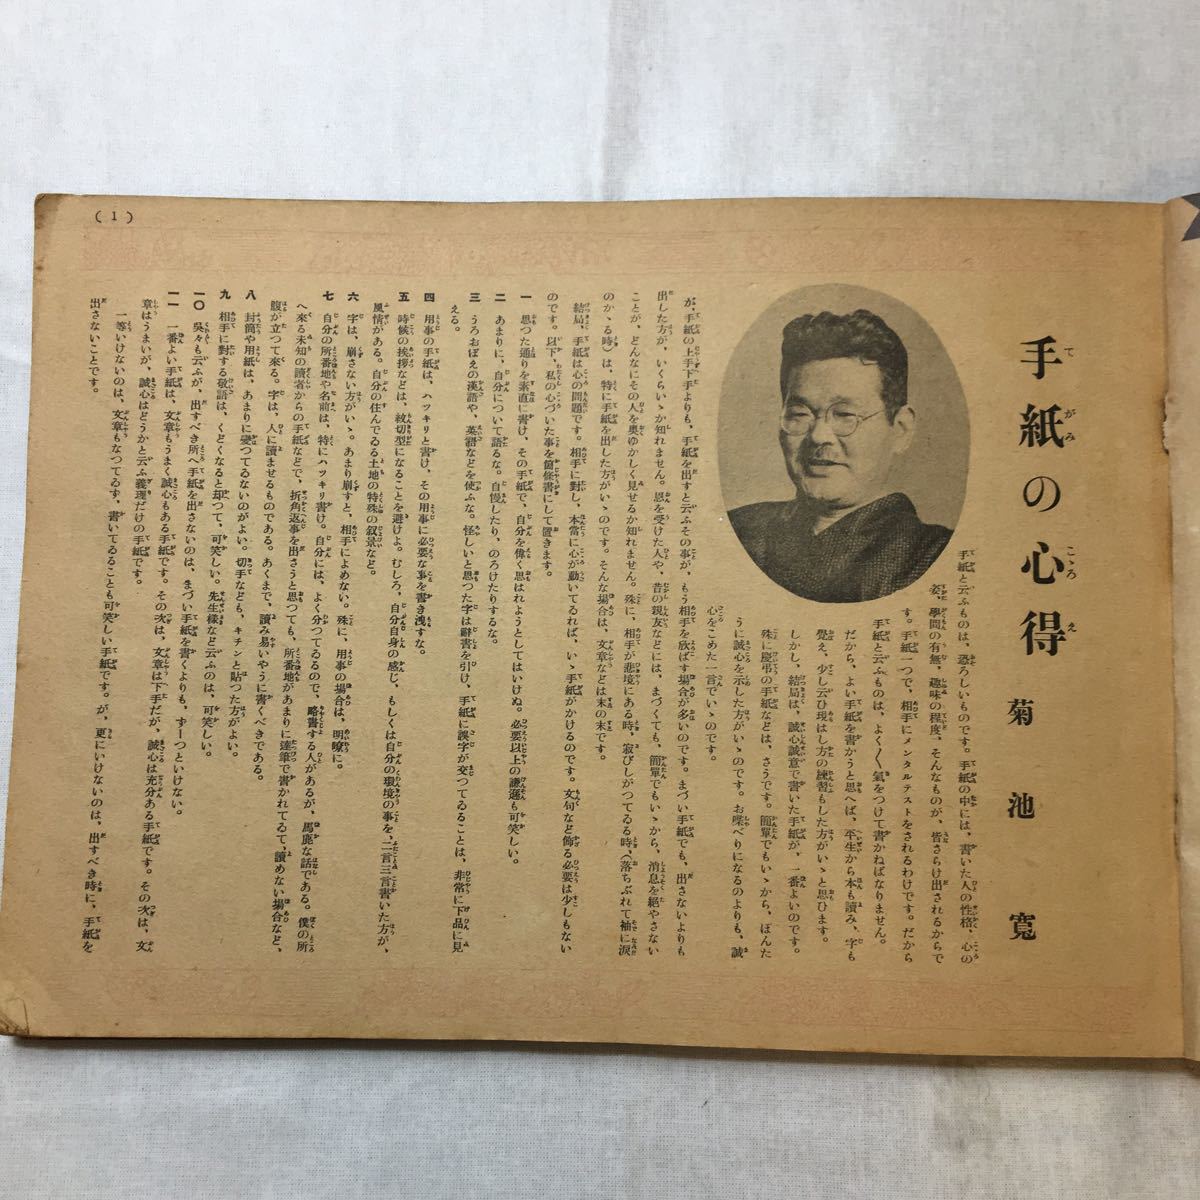 (1)
手紙の心得
菊池寛
手紙と云ふものは、恐ろしいものです。手紙の中には、書いた人の性格、心の
姿、學問の有無、趣味の程度、そんなものが、皆さらけ出されるからで
す。手紙一つで、相手にメンタルテストをされるわけです。だから
手紙と云ふものは、よく〳〵氣をつけて書かねばなりません。
だから、よい手紙を書かうと思へば、平生から本も讀み、字も
覺え、少し云ひ現はし方の練習もした方がいゝと思ひます。
しかし、結局は、誠心誠意で書いた手紙が、一番よいのです。
殊に慶弔の手紙などは、さうです。簡單でもいゝから、ほんた
うに誠心を示した方がいゝのです。お喋べりになるのよりも、誠
心をこめた一言でいゝのです。
が、手紙の上手下手よりも、手紙を出すと云ふその事が、もう相手を欣ばす場合が多いのです。まづい手紙でも、出さないよりも
出した方が、いくらいゝか知れません。恩を受けた人や、昔の親友などには、まづくても、簡單でもいゝから、消息を絶やさない
ことが、どんなにその人を奧ゆかしく見せるか知れません。殊に、相手が悲境にある時、寂びしがつてる時、(落ちぶれて袖に涙
のかゝる時)は、特に手紙を出した方がいゝのです。そんな場合は、文章などは末の末です。
結局、手紙は心の問題です。相手に對し、本當に心が動いてゐれば、いゝ手紙がかけるのです。文句など飾る必要は少しもない
のです。以下、私の心づいた事を箇條書にして置きます。
一 思つた通りを素直に書け、その手紙で、自分を偉く思はれようとしてはいけぬ。必要以上の謙遜も可笑しい。
二 あまりに、自分について語るな。自慢したり、のろけたりするな。
三 うろおぼえの漢語や、英語などを使ふな。怪しいと思つた字は辭書を引け、手紙に誤字が交つてることは、非常に下品に見
える。
四 用事の手紙は、ハツキリと書け、その用事に必要な事を書き洩すな。
五 時候の挨拶などは、紋切型になることを避けよ。むしろ、自分自身の感じ、もしくは自分の環境の事を、二言三言書いた方が、
風情がある。自分の住んでゐる土地の特殊の叙景など。
六 字は、崩さない方がいゝ。あまり崩すと、相手によめない。殊に、用事の場合は、明瞭に。
七 自分の所番地や名前は、特にハツキリ書け。自分には、よく分つてゐるので、略書する人があるが、馬鹿な話である。僕の所
へ來る未知の讀者からの手紙などで、折角返事を出さうと思つても、所番地があまりに達筆で書かれてゐて、讀めない場合など、
腹が立つて來る。字は、人に讀ませるものである。あくまで、讀み易いやうに書くべきである。
八 封筒や用紙は、あまりに變つてゐないのがよい。切手なども、キチンと貼つた方がよい。
九 相手に對する敬語は、くどくなると却つて、可笑しい。先生樣など云ふのは、可笑しい。
一〇 呉々も云ふが、出すべき所へ手紙を出さないのは、まづい手紙を書くよりも、ずーつといけない。
一一 一番よい手紙は、文章もうまく誠心もある手紙です。その次は、文章は下手だが、誠心は充分ある手紙です。その次は、文
章はうまいが、誠心はどうかと云ふ義理だけの手紙です。
一等いけないのは、文章もなつてゐず、書いてゐることも可笑しい手紙です。が、更にいけないのは、出すべき時に、手紙を
出さないことです。